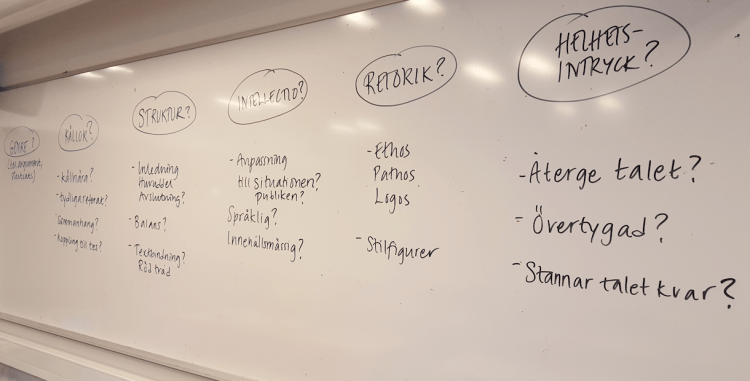 GENRE?
KÄLLOR?
- Källnära?
- tydliga referat?
Sammanhang?
- Koppling till tes?
STRUKTUR?
- Inledning
Huvuddel
Avslutning?
- Balans?
- Textbindning?
Röd tråd
INTELLECTIO?
- Anpassning
till situationen?
publiken?
Språklig?
Innehållsmässig?
RETORIK?
- Ethos
Pathos
Logos
- Stilfigurer
HELHETS-
INTRYCK?
- Återge talet?
- Övertygad?
- Stannar talet kvar?